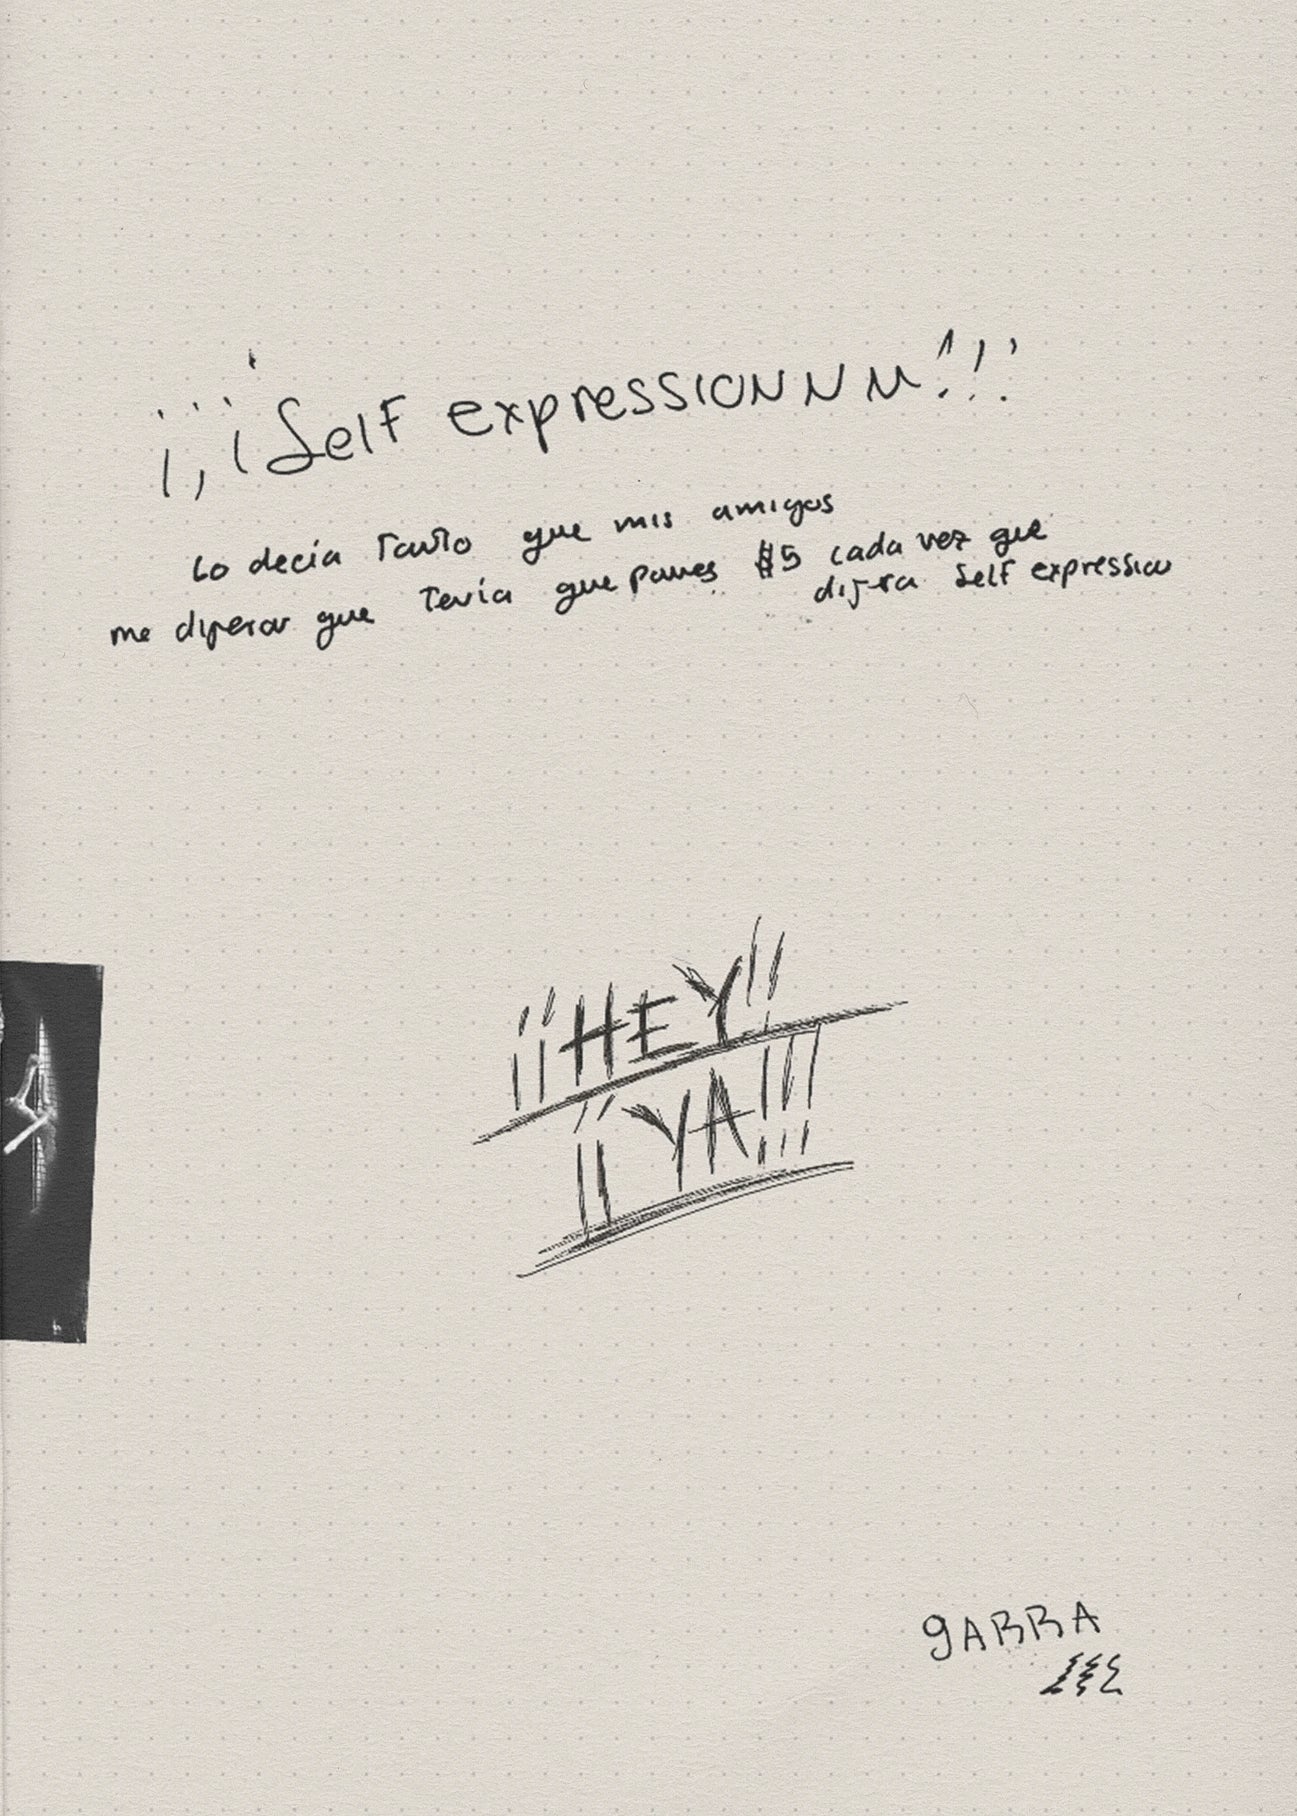 ¡¡¡Self expressionnn!!!
Lo decía tanto que mis amigos
me dijeron que tenía que $5 cada vez que
dijera self expression
¡¡HEY!!
¡¡YA!!!
gARRA